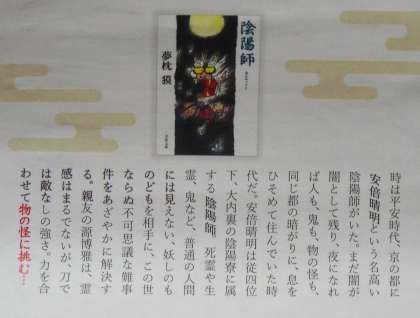 陰陽師
夢枕 獏
時は平安時代、京の都に
安倍晴明という名高い
陰陽師がいた。まだ闇が
闇として残り、夜になれ
ば人も、鬼も、物の怪も、
同じ都の暗がりに、息を
ひそめて住んでいた時
代だ。安倍晴明は従四位
下、大内裏の陰陽寮に属
する陰陽師。死霊や生
霊、鬼など、普通の人間
には見えない、妖しのも
のどもを相手に、この世
ならぬ不可思議な難事
件をあざやかに解決す
る。親友の源博雅は、霊
感はまるでないが、刀で
は敵なしの強さ。力を合
わせて物の怪に挑む…